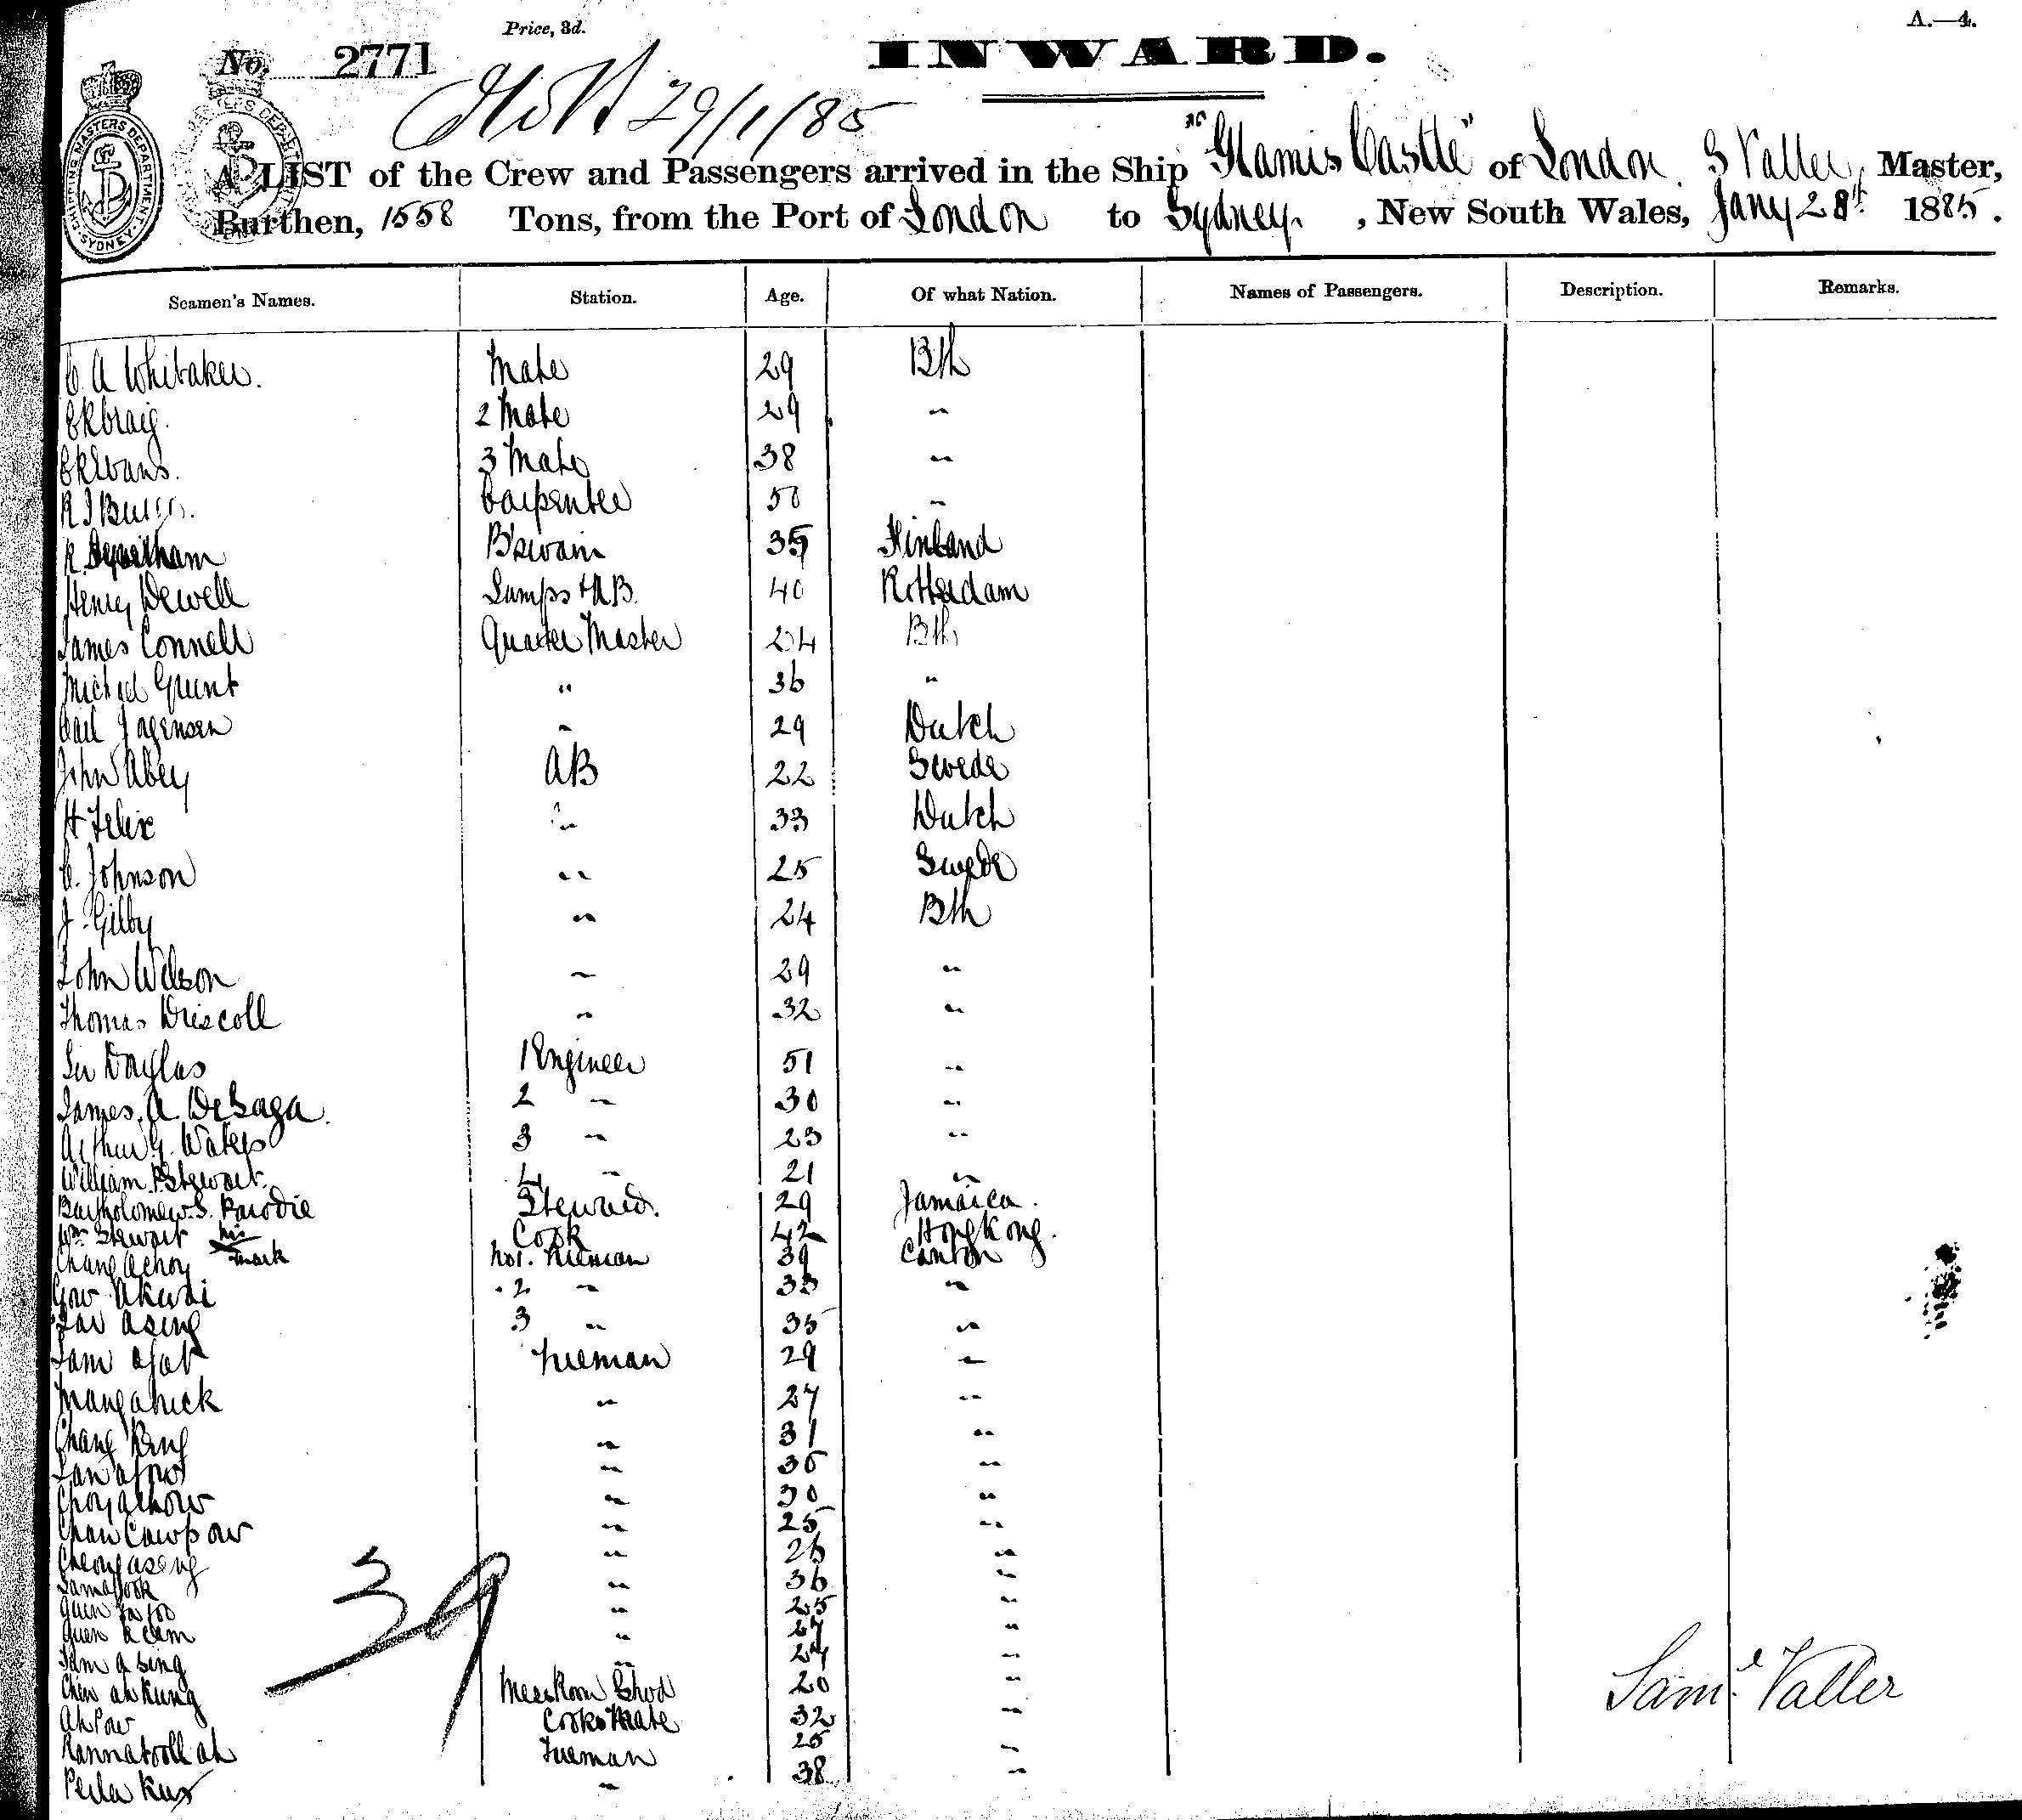 Price, 3d.
A.—4.
No. 2771
INWARD.
29/1/85
SHIPPING MASTERS DEPARTMENT SYDNEY
A LIST of the Crew and Passengers arrived in the Ship "Glamis Castle" of London S Valler, Master,
Burthen, 1558 Tons, from the Port of London to Sydney, New South Wales, Jany 28th 1885.
Seamen's Names. Station. Age. Of what Nation. Names of Passengers. Description. Remarks.
C A Whitaker. Mate 29 Bth
E R Craig. 2 Mate 29 "
E R Evans. 3 Mate 38 "
R J Carpenter 50 "
R. B'swain 35 Finland
Henry Dewell Lamps & AB. 40 Rotterdam
James Connell Quarter Master 24 Bth
Michael Grunt " 36 "
Carl Jagensen " 29 Dutch
John Abey AB 22 Swede
H Felix " 33 Dutch
C. Johnson " 25 Swede
J. Gilby " 24 Bth
John Wilson " 29 "
Thomas Driscoll " 32 "
Douglas 1 Engineer 51 "
James. A. DeSaga. 2 " 30 "
Arthur G. Waters 3 " 23 "
William Stewart. 4 " 21 "
Bartholomew. S. Parodie Steward. 29 Jamaica.
Wm Stewart his X mark Cook 42 Hong Kong.
Chang Achoy No1. Fireman 39 Canton
Gow Akwai 2 " 33 "
Asing 3 " 35 "
Lam Afat Fireman 29 "
" 27 "
Chang King " 31 "
" 36 "
Choy Achow " 30 "
Chan Cawpow " 25 "
Cheong Aseng " 26 "
Lam " 36 "
" 25 "
Acam " 27 "
Lam Asing " 24 "
Chin Ah Kung Messroom Stwd 20 "
Ah Pow Cooks Mate 32 "
Rannatoollah Fireman 25 "
" 38 "
39
Saml. Valler